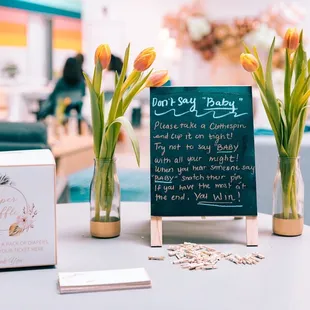 Don't Say "Baby"
Please take a Clotespin
and clip it on tight!
Try not to say "BABY"
with all your might!
When you hear someone say
"BABY" snatch their pin
if you have the most at
the end.
You WIN!